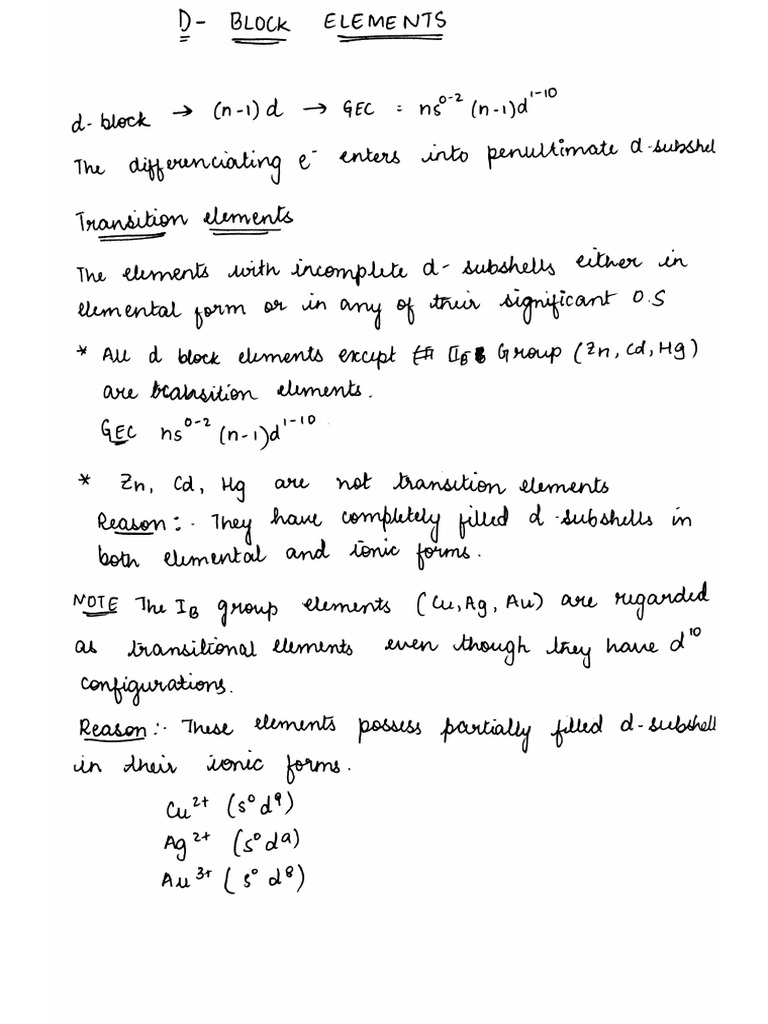 D- BLOCK ELEMENTS
d-block → (n-1) d → GEC : ns⁰⁻² (n-1)d¹⁻¹⁰
The differenciating e⁻ enters into penultimate d-subshel
Transition elements
The elements with incomplete d- subshells either in
elemental form or in any of their significant O.S
* All d block elements except Group (Zn, Cd, Hg)
are transition elements.
GEC ns⁰⁻² (n-1)d¹⁻¹⁰
* Zn, Cd, Hg are not transition elements
Reason:- They have completely filled d-subshells in
both elemental and ionic forms.
NOTE The I_B group elements (Cu, Ag, Au) are regarded
as transitional elements even though they have d¹⁰
configurations.
Reason:- These elements possess partially filled d-subshell
in their ionic forms.
Cu²⁺ (s⁰d⁹)
Ag²⁺ (s⁰d⁹)
Au³⁺ (s⁰ d⁸)